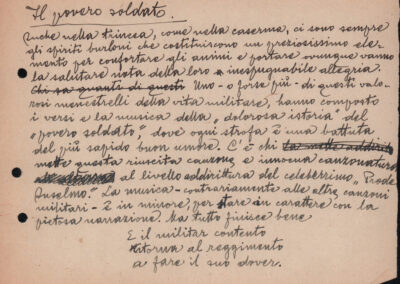 Il povero soldato.
Anche nella trincea, come nella caserma, ci sono sempre
gli spiriti burloni che costituiscono un preziosissimo ele-
mento per confortare gli animi e portare ovunque vanno
la salutare nota della loro inespugnabile allegria.
Chi sa quanti di questi Uno - o forse più - di questi valo-
rosi menestrelli della vita militare, hanno composto
i versi e la musica della "dolorosa istoria" del
"povero soldato", dove ogni strofa è una battuta
del più sapido buon umore. C'è chi la mette addirit
mette questa riuscita canzone e innocua canzonatura
al livello addirittura del celeberrimo "Prode
Anselmo." La musica - contrariamente alle altre canzoni
militari - è in minore, per stare in carattere con la
pietosa narrazione. Ma tutto finisce bene
E il militar contento
ritorna al reggimento
a fare il suo dover.